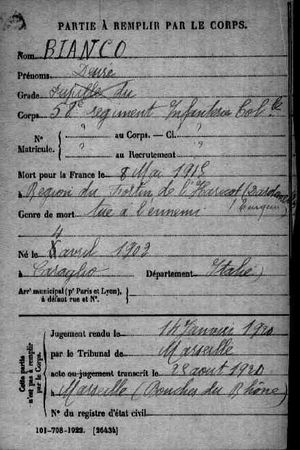 PARTIE À REMPLIR PAR LE CORPS.
Nom BIANCO
Prénoms Désiré
Grade Pupille du
Corps 58e régiment Infanterie Colle
N° " au Corps. — Cl. "
Matricule. " au Recrutement "
Mort pour la France le 8 Mai 1915
à Région du Fortin de l'Haricot (Dardanelles
Turquie)
Genre de mort tué à l'ennemi
Né le 4 avril 1902
à Caraglio Département Italie)
Arrt municipal (pr Paris et Lyon),
à défaut rue et N°.
Cette partie n'est pas à remplir par le Corps.
Jugement rendu le 14 Janvier 1920
par le Tribunal de Marseille
acte ou jugement transcrit le 28 août 1920
à Marseille (Bouches du Rhône)
N° du registre d'état civil
101-708-1922. [26434]